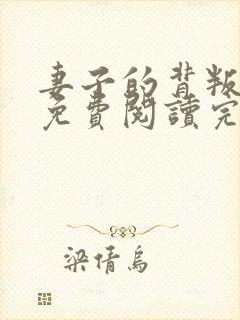 妻子的背叛
免費閱讀完
梁倩烏